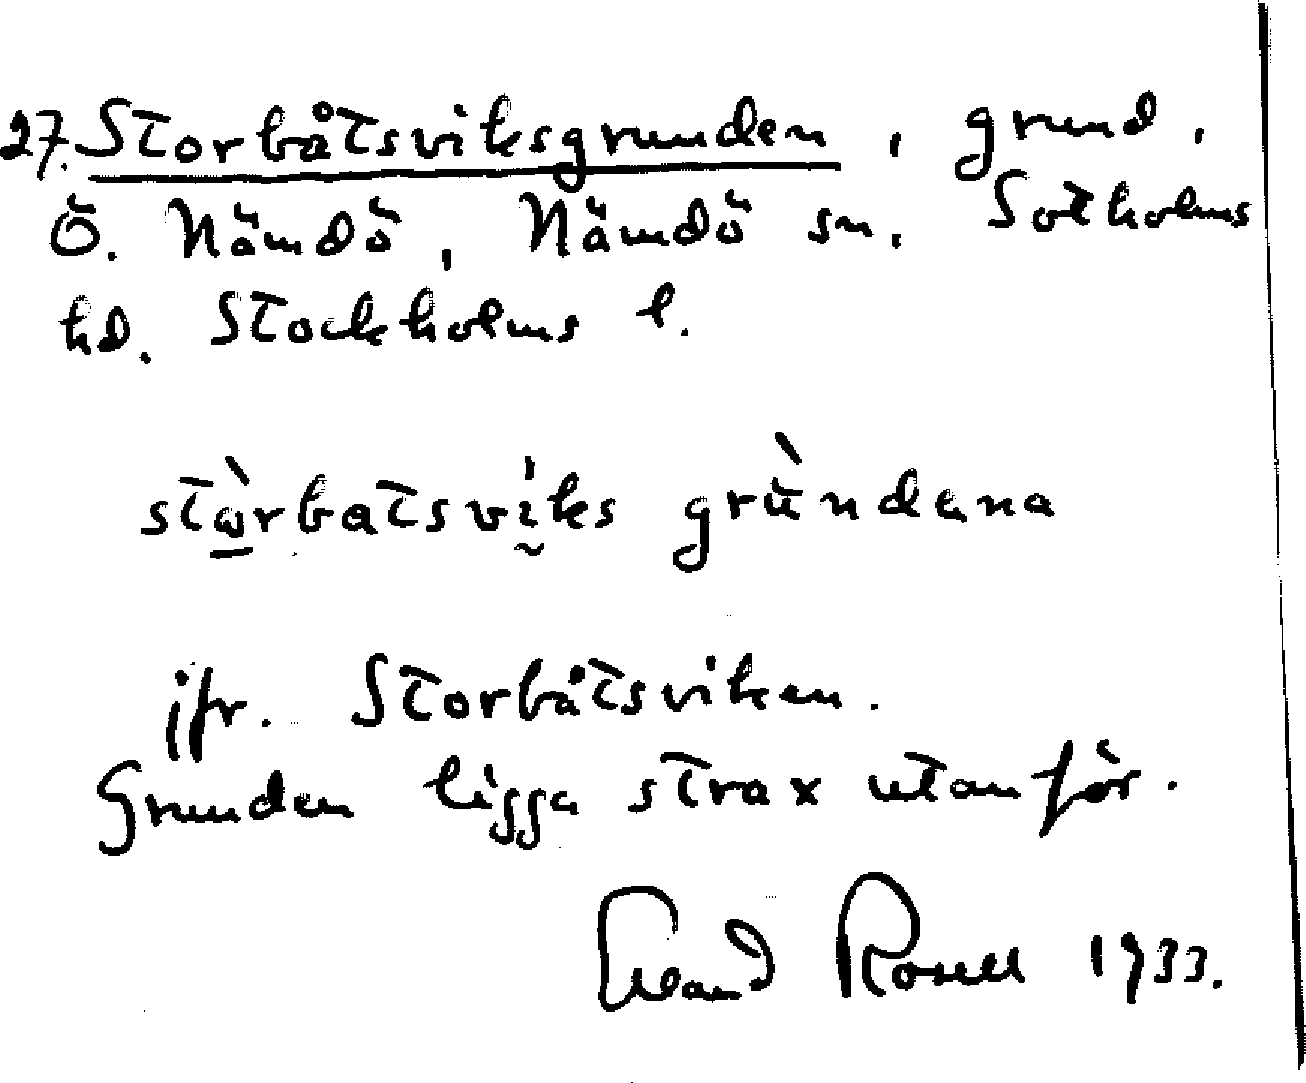 27. Storbåtsviksgrunden, grund,
Ö. Nämdö, Nämdö sn. Sotholms
hd. Stockholms l.
stòrbatsvíks grùndena
jfr. Storbåtsviken.
Grunden ligga strax utanför.
Erland Rosell 1933.